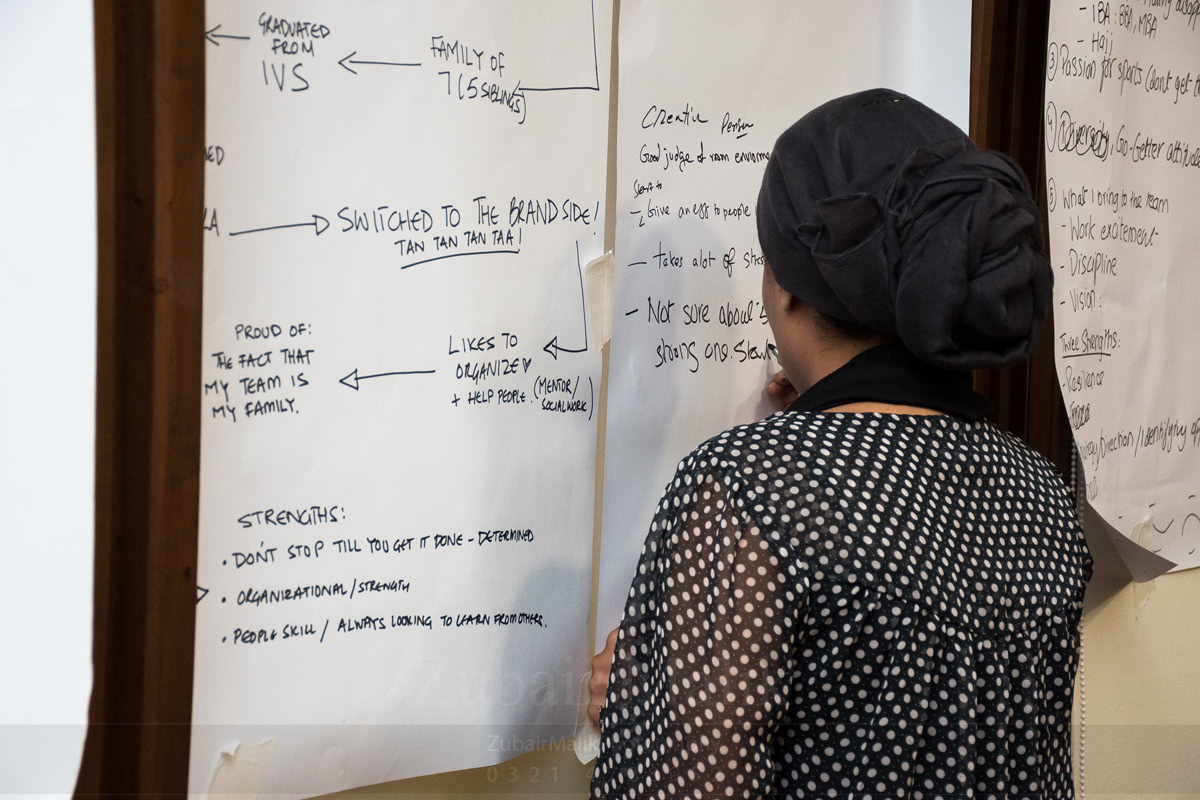 GRADUATED
FROM
IVS
FAMILY OF
7 (5 SIBLINGS)
SWITCHED TO THE BRAND SIDE!
TAN TAN TAN TAA!
LIKES TO
ORGANIZE ♥
+ HELP PEOPLE. (MENTOR/
SOCIAL WORK)
PROUD OF:
THE FACT THAT
MY TEAM IS
MY FAMILY.
STRENGTHS:
• DON'T STOP TILL YOU GET IT DONE - DETERMINED
• ORGANIZATIONAL / STRENGTH
• PEOPLE SKILL / ALWAYS LOOKING TO LEARN FROM OTHERS.
Creative Person
Good judge of room
to people
- takes alot of
- Not sure about
strong one.
- IBA: BBA, MBA
- Hajj
③ Passion for sports (dont get
④ Go-Getter attitude
⑤ What I bring to the team
- Work excitement
- Discipline
- Vision.
Three Strengths:
- Resilience
ZubairMalik
0321